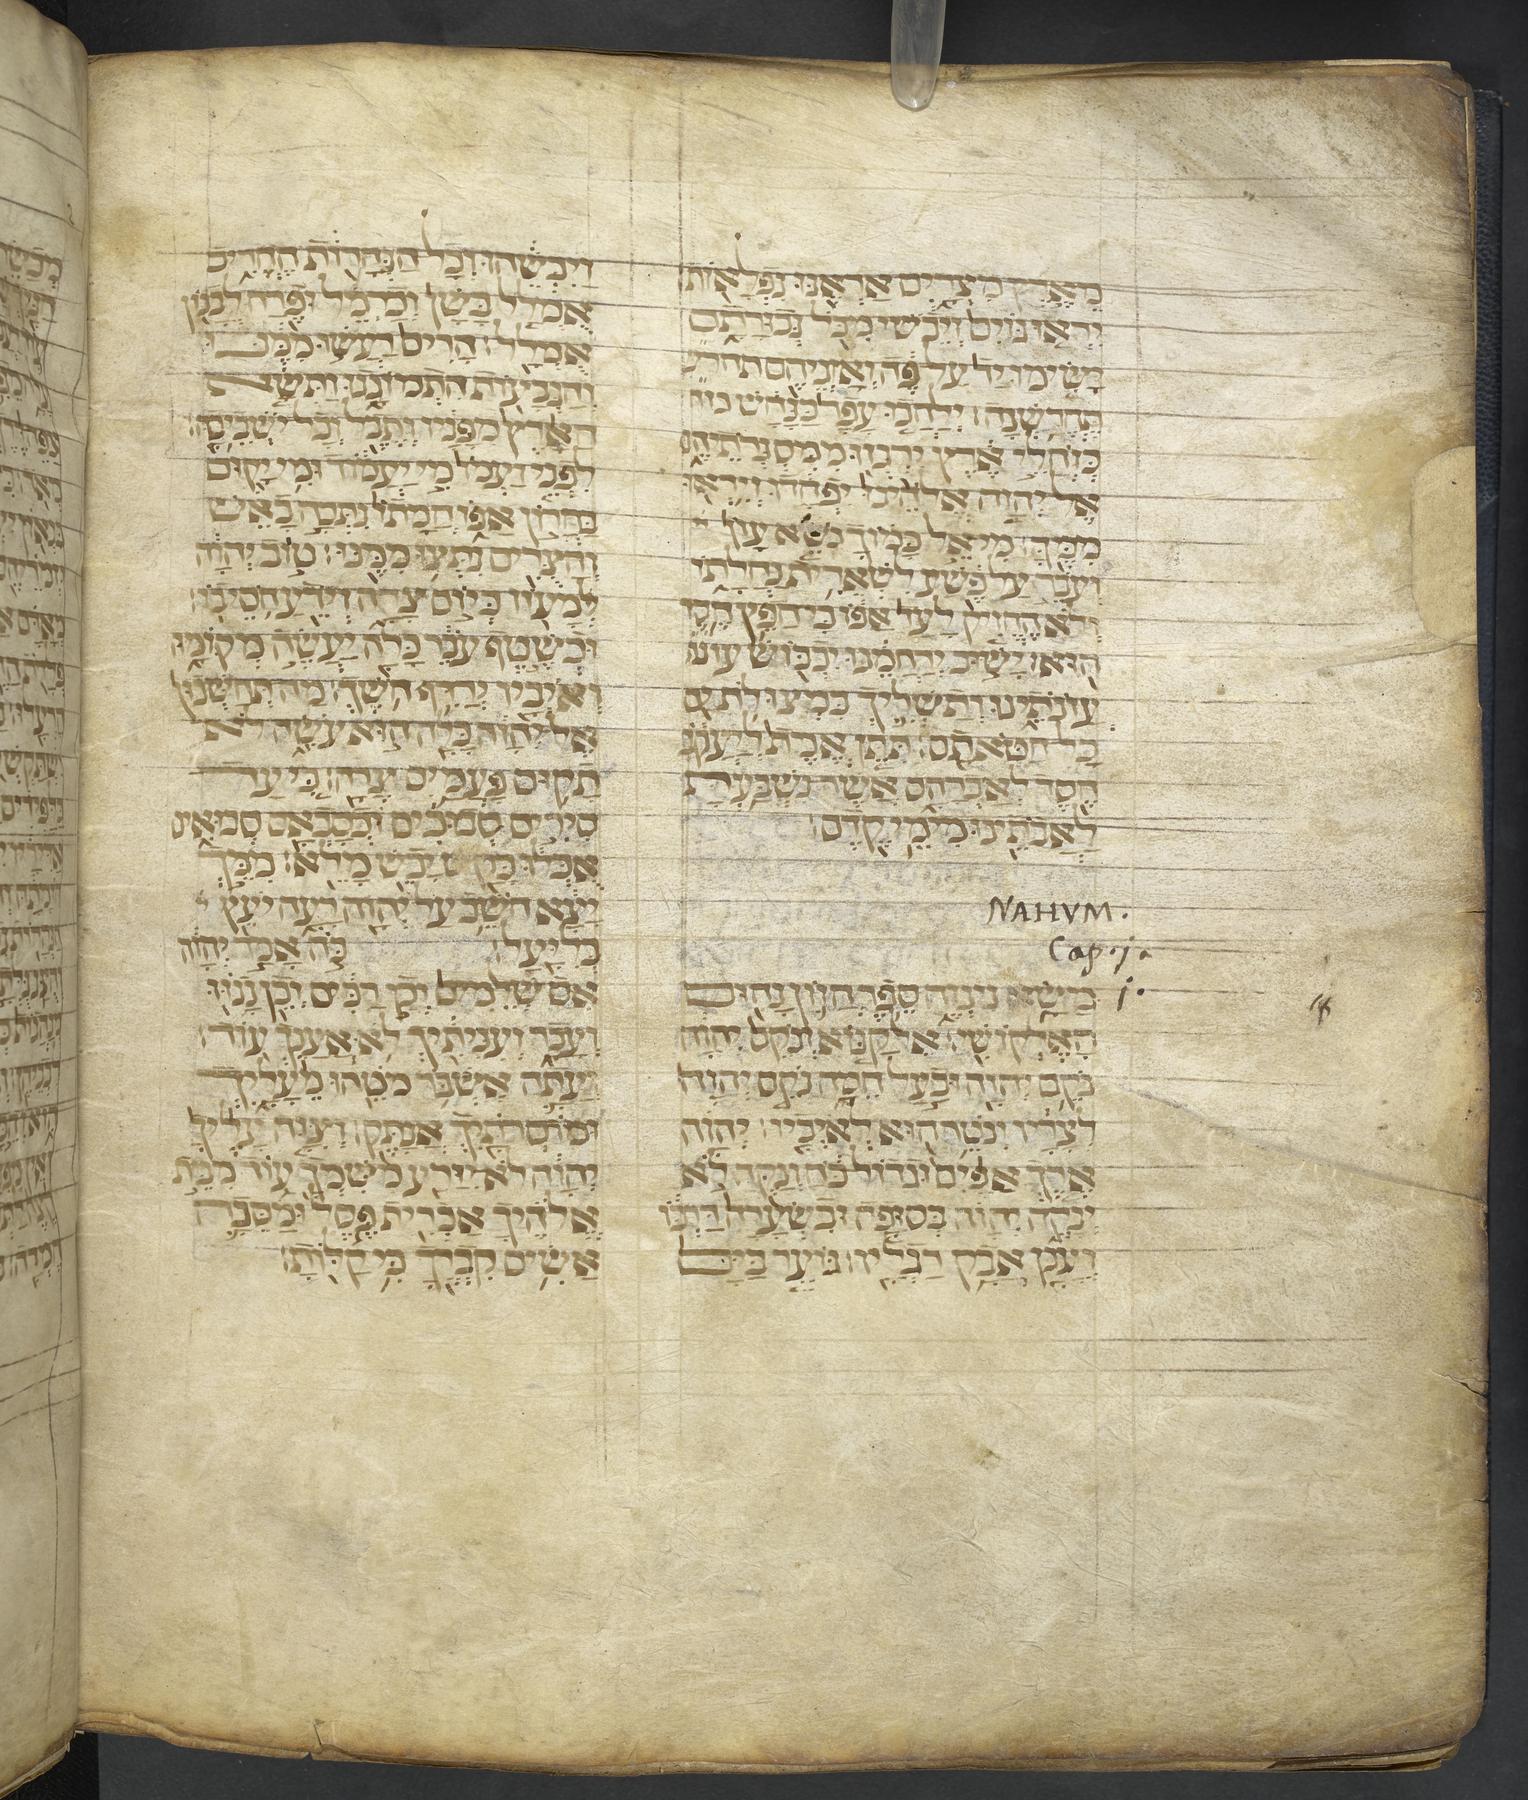 מארץ מצרים אראנו נפלאות
יראו גוים ויבשו מכל גבורתם
ישימו יד על פה ואזניהם תחר
תחרשנה: ילחכו עפר כנחש כזו
כזחלי ארץ ירגזו ממסגרתיהם
אל יהוה אלהינו יפחדו ויראו
ממך: מי אל כמוך נשא עון
ועבר על פשע לשארית נחלתו
ולא החזיק לעד אפו כי חפץ חסד
הוא: ישוב ירחמנו יכבוש עונ
עונתינו ותשליך במצולת ים
כל חטאתם: תתן אמת ליעקב
חסד לאברהם אשר נשבעת
לאבתינו מימי קדם:
NAHVM.
Cap. j.
משא נינוה ספר חזון נחום j.
האלקושי: אל קנא ונקם יהוה
נקם יהוה ובעל חמה נקם יהוה
לצריו ונטר הוא לאיביו: יהוה
ארך אפים וגדול כח ונקה לא
ינקה יהוה בסופה ובשערה דרכו
וענן אבק רגליו: גוער בים
ויבשהו וכל הנהרות החריב
אמלל בשן וכרמל ופרח לבנון
אמלל: הרים רעשו ממנו
והגבעות התמוגגו ותשא
הארץ מפניו ותבל וכל ישבי בה:
לפני זעמו מי יעמוד ומי יקום
בחרון אפו חמתו נתכה כאש
והצרים נתצו ממנו: טוב יהוה
למעוז ביום צרה וידע חסי בו:
ובשטף עבר כלה יעשה מקומה
ואיביו ירדף חשך: מה תחשבון
אל יהוה כלה הוא עשה לא
תקום פעמים צרה: כי עד
סירים סבכים וכסבאם סבואים
אכלו כקש יבש מלא: ממך
יצא חשב על יהוה רעה יעץ
בליעל: כה אמר יהוה
אם שלמים וכן רבים וכן נגוזו
ועבר ועניתיך לא אענך עוד:
ועתה אשבר מטהו מעליך
ומוסרתיך אנתק: וצוה עליך
יהוה לא יזרע משמך עוד מבית
אלהיך אכרית פסל ומסכה
אשים קברך כי קלות: